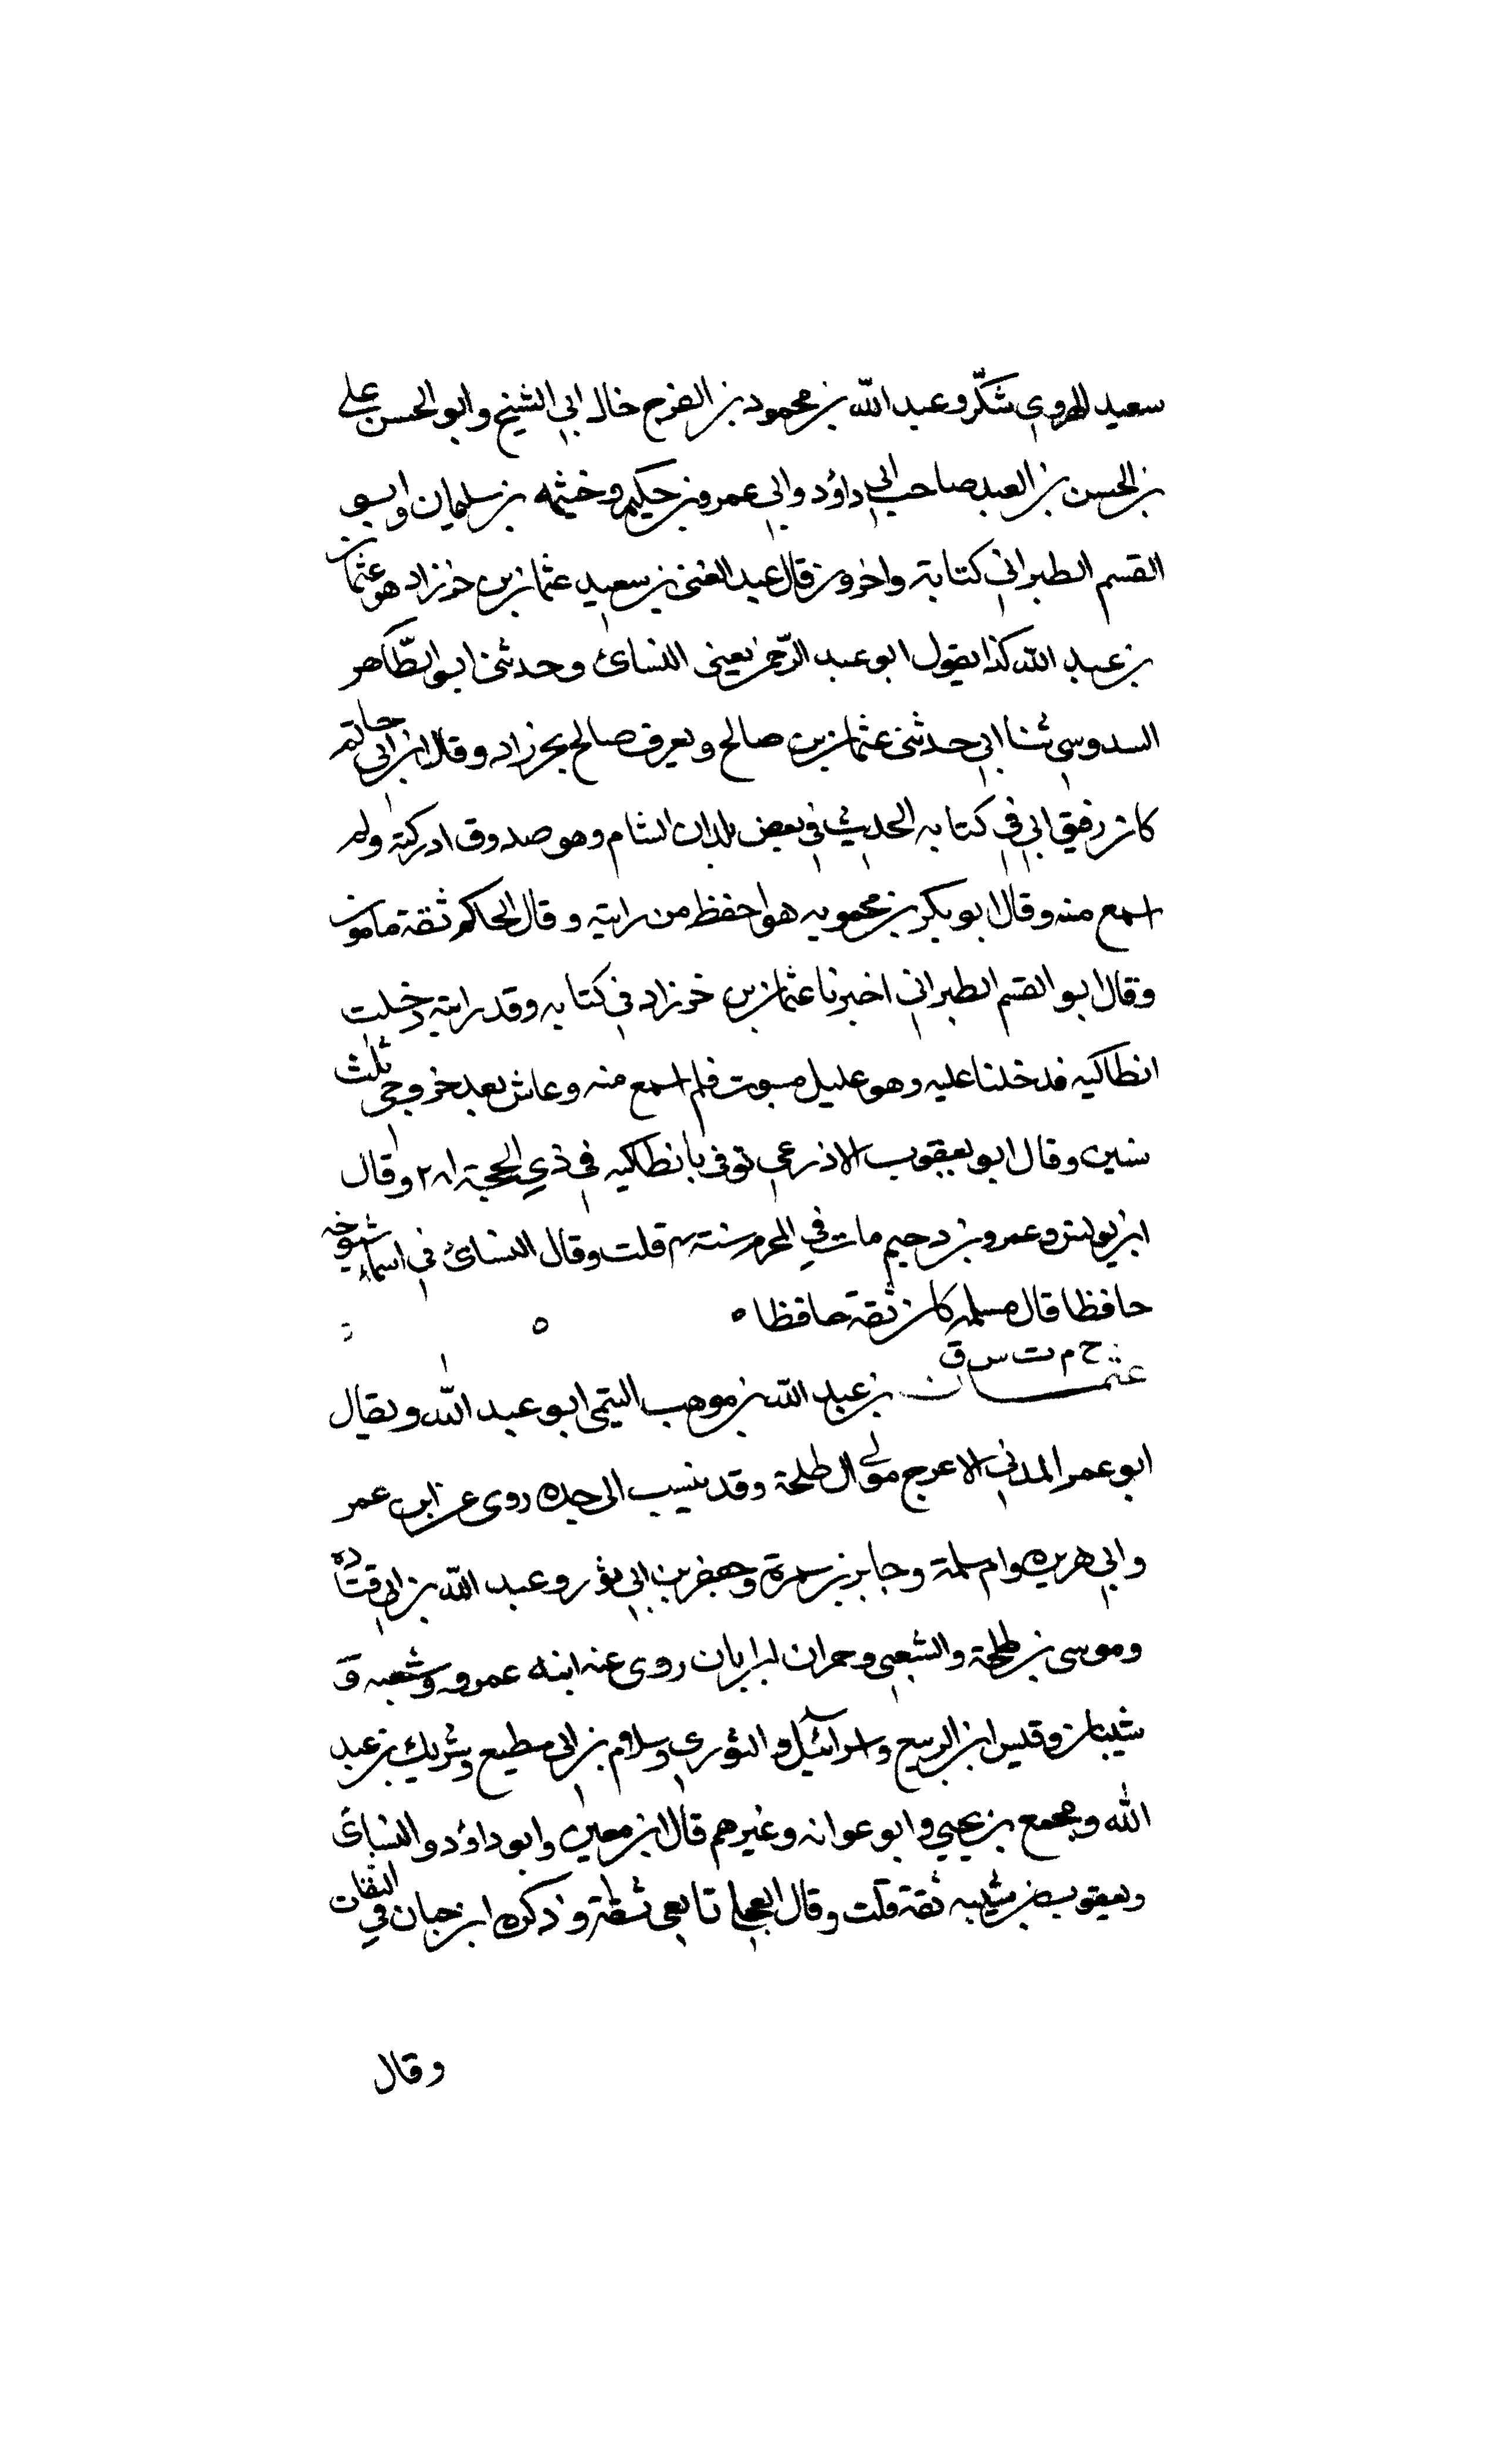 سعيد الهروي شكّر وعبد الله بن محمود بن الفرج خال ابي الشيخ وابو الحسن علي
بن الحسن بن العبد صاحب ابي داؤد وابي عمرو بن حكيم وخيثمه بن سليمان وابو
القسم الطبراني كتابة واخرون قال عبد الغني بن سعيد عثمان بن خرزاد هو عثمان
بن عبد الله كذا يقول ابو عبد الرحمن يعني النسائ وحدثنا ابو الطّاهر
السدوسي ثنا ابي حدثني عثمان بن صالح ويعرف صالح بخرزاد وقال ابن ابي حاتم
كان رفيق ابي في كتابه الحديث في بعض بلدان الشام وهو صدوق ادركته ولم
اسمع منه وقال ابو بكر بن محمويه هو احفظ من رايته وقال الحاكم ثقة مامون
وقال ابو القسم الطبراني اخبرنا عثمان بن خرزاد في كتابه وقد رايته دخلت
انطاكيه فدخلنا عليه وهو عليل مسبوت فلم اسمع منه وعاش بعد خروجي ثلث
سنين وقال ابو يعقوب الاذرعي توفي بانطاكيه في ذي الحجة ٢٨١ وقال
ابن يونس وعمرو بن دحيم مات في المحرم سنة قلت وقال النسائ في اسماء شيوخه
حافظا قال مسلمه كان ثقة حافظا ه ه
خ م ت س ق
عثمان بن عبد الله بن موهب التيمي ابو عبد الله ويقال
ابو عمر المدني الاعرج مولي ال طلحة وقد ينسب الى جده روى عن ابن عمر
وابي هريره وام سلمة وجابر بن سمرة وجعفر بن ابي ثور وعبد الله بن ابي قتاده
وموسى بن طلحة والشعبي وحمران ابن ابان روى عنه ابنه عمرو وشعبه و
شيبان وقيس ابن الربيع واسرآئيل والثوري وسلام بن ابي مطيع وشريك بن عبد
الله ومجمع بن يحيي وابو عوانه وغيرهم قال ابن معين وابو داؤد والنسائ
ويعقوب بن شيبه ثقة قلت وقال العجلي تابعي ثقة وذكره ابن حبان في الثقات
وقال